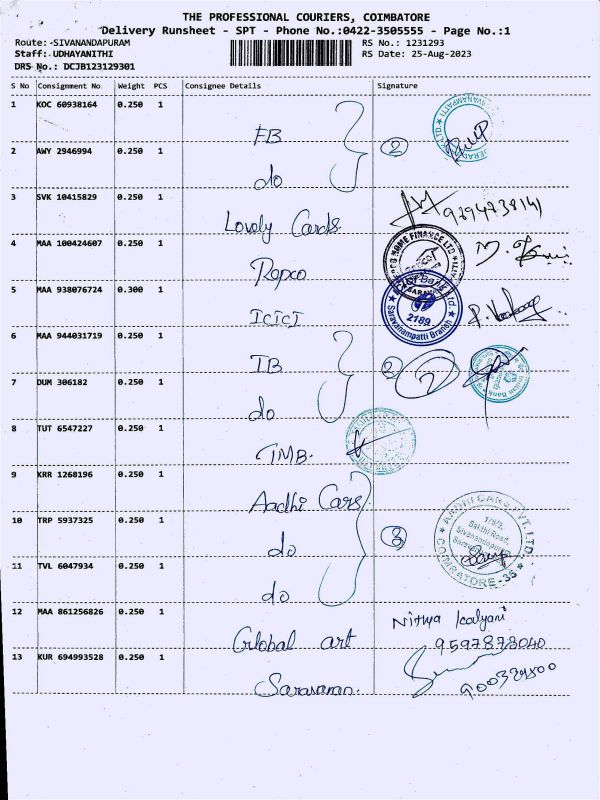 THE PROFESSIONAL COURIERS, COIMBATORE
Delivery Runsheet - SPT - Phone No.:0422-3505555 - Page No.:1
Route: -SIVANANDAPURAM RS No.: 1231293
Staff: UDHAYANITHI RS Date: 25-Aug-2023
DRS No.: DCJB123129301
S No Consignment No Weight PCS Consignee Details Signature
1 KOC 60938164 0.250 1 FB
2 AWY 2946994 0.250 1 do 2
3 SVK 10415829 0.250 1 Lovely Cards
4 MAA 100424607 0.250 1 Repco
HOME FINANCE LTD
5 MAA 938076724 0.300 1 ICICI
2189
Saravanampatti Branch
6 MAA 944031719 0.250 1 IB 2
7 DUM 306182 0.250 1 do
8 TUT 6547227 0.250 1 TMB.
9 KRR 1268196 0.250 1 Aadhi Cars
10 TRP 5937325 0.250 1 do 3
AADHI CARS PVT. LTD.
Sakthi Road,
COIMBATORE-35
11 TVL 6047934 0.250 1 do
12 MAA 861256826 0.250 1 Global art Nithya kalyani
9597873040
13 KUR 694993528 0.250 1 Saravanan.